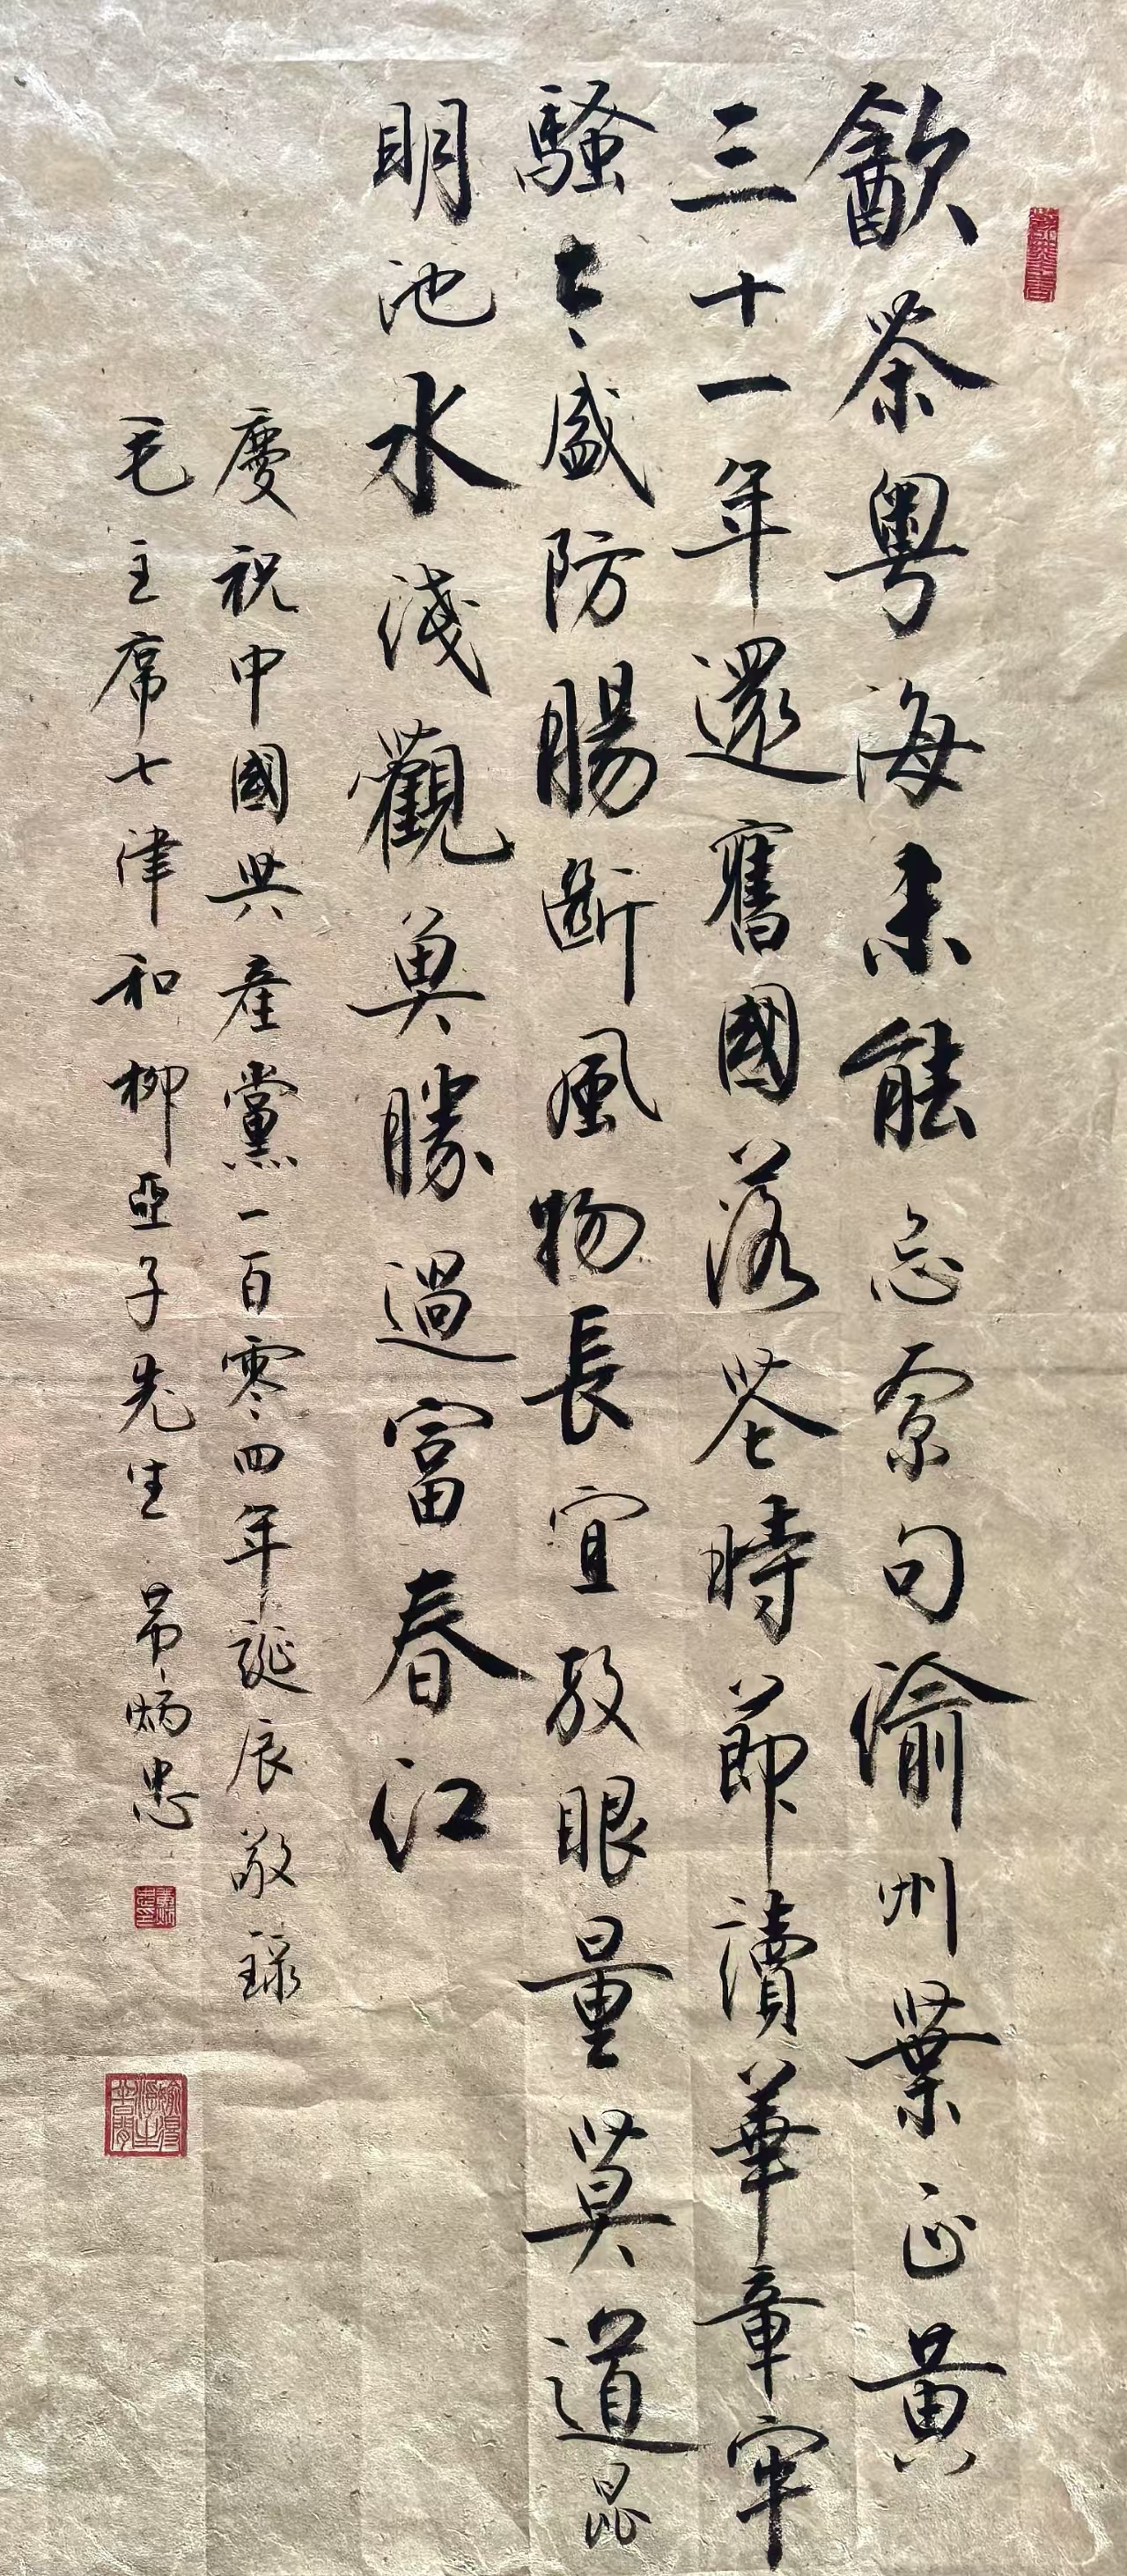 飲茶粤海未能忘索句渝州葉正黄
三十一年還舊國落花時節讀華章牢
騷太盛防腸斷風物長宜放眼量莫道昆
明池水淺觀魚勝過富春江
慶祝中國共產黨一百零四年誕辰敬録
毛主席七律和柳亞子先生 炳忠